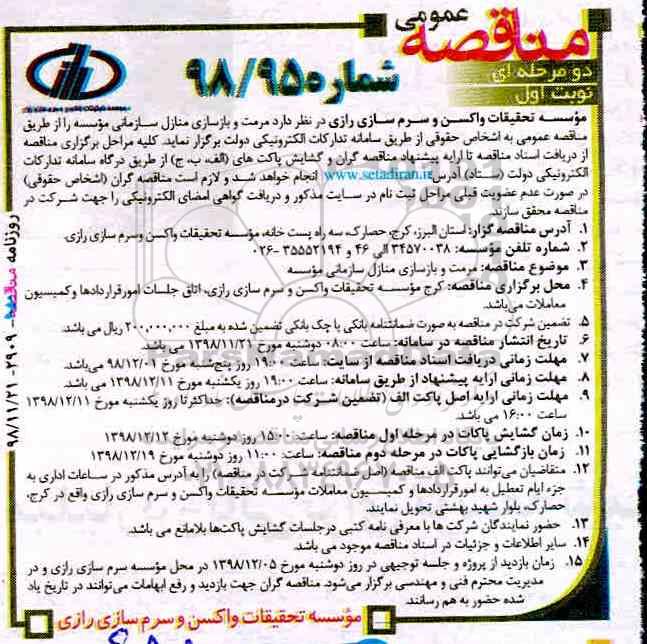 مناقصه
عمومی
دو مرحله ای
نوبت اول
شماره ۹۸/۹۵
مؤسسه تحقیقات واکسن و سرم سازی رازی در نظر دارد مرمت و بازسازی منازل سازمانی مؤسسه را از طریق
مناقصه عمومی به اشخاص حقوقی از طریق سامانه تدارکات الکترونیکی دولت برگزار نماید. کلیه مراحل برگزاری مناقصه
از دریافت اسناد مناقصه تا ارایه پیشنهاد مناقصه گران و گشایش پاکت های (الف، ب، ج) از طریق درگاه سامانه تدارکات
الکترونیکی دولت (ستاد) آدرس www.setadiran.ir انجام خواهد شد و لازم است مناقصه گران (اشخاص حقوقی)
در صورت عدم عضویت قبلی مراحل ثبت نام در سایت مذکور و دریافت گواهی امضای الکترونیکی را جهت شرکت در
مناقصه محقق سازند.
۱. آدرس مناقصه گزار: استان البرز، کرج، حصارک، سه راه پست خانه، مؤسسه تحقیقات واکسن وسرم سازی رازی.
۲. شماره تلفن مؤسسه: ۳۴۵۷۰۰۳۸ الی ۴۶ و ۳۵۵۵۲۱۹۴ -۰۲۶
۳. موضوع مناقصه: مرمت و بازسازی منازل سازمانی مؤسسه
۴. محل برگزاری مناقصه: کرج مؤسسه تحقیقات واکسن و سرم سازی رازی، اتاق جلسات امورقراردادها وکمیسیون
معاملات می‌باشد.
۵. تضمین شرکت در مناقصه به صورت ضمانتنامه بانکی یا چک بانکی تضمین شده به مبلغ ۲۰۰,۰۰۰,۰۰۰ ریال می باشد.
۶. تاریخ انتشار مناقصه در سامانه: ساعت ۰۸:۰۰ دوشنبه مورخ ۱۳۹۸/۱۱/۲۱ می باشد.
۷. مهلت زمانی دریافت اسناد مناقصه از سایت: ساعت ۱۹:۰۰ روز پنج‌شنبه مورخ ۹۸/۱۲/۰۱ می‌باشد.
۸. مهلت زمانی ارایه پیشنهاد از طریق سامانه: ساعت ۱۹:۰۰ روز یکشنبه مورخ ۱۳۹۸/۱۲/۱۱ می باشد.
۹. مهلت زمانی ارایه اصل پاکت الف (تضمین شرکت درمناقصه): حداکثر تا روز یکشنبه مورخ ۱۳۹۸/۱۲/۱۱
ساعت ۱۶:۰۰ می باشد.
۱۰. زمان گشایش پاکات در مرحله اول مناقصه: ساعت ۱۵:۰۰ روز دوشنبه مورخ ۱۳۹۸/۱۲/۱۲
۱۱. زمان بازگشایی پاکات در مرحله دوم مناقصه: ساعت ۱۱:۰۰ روز دوشنبه مورخ ۱۳۹۸/۱۲/۱۹
۱۲. متقاضیان می‌توانند پاکت الف مناقصه (اصل ضمانتنامه شرکت در مناقصه) را به آدرس مذکور در ساعات اداری به
جزء ایام تعطیل به امورقراردادها و کمیسیون معاملات مؤسسه تحقیقات واکسن و سرم سازی رازی واقع در کرج،
حصارک، بلوار شهید بهشتی تحویل نمایند.
۱۳. حضور نمایندگان شرکت ها با معرفی نامه کتبی درجلسات گشایش پاکت‌ها بلامانع می باشد.
۱۴. سایر اطلاعات و جزئیات در اسناد مناقصه موجود می باشد.
۱۵. زمان بازدید از پروژه و جلسه توجیهی در روز دوشنبه مورخ ۱۳۹۸/۱۲/۰۵ در محل مؤسسه سرم سازی رازی و در
مدیریت محترم فنی و مهندسی برگزار می‌شود. مناقصه گران جهت بازدید و رفع ابهامات می‌توانند در تاریخ یاد
شده حضور به هم رسانند.
مؤسسه تحقیقات واکسن و سرم سازی رازی
روزنامه مناقصه - ۲۹۰۹ - ۹۸/۱۱/۲۱